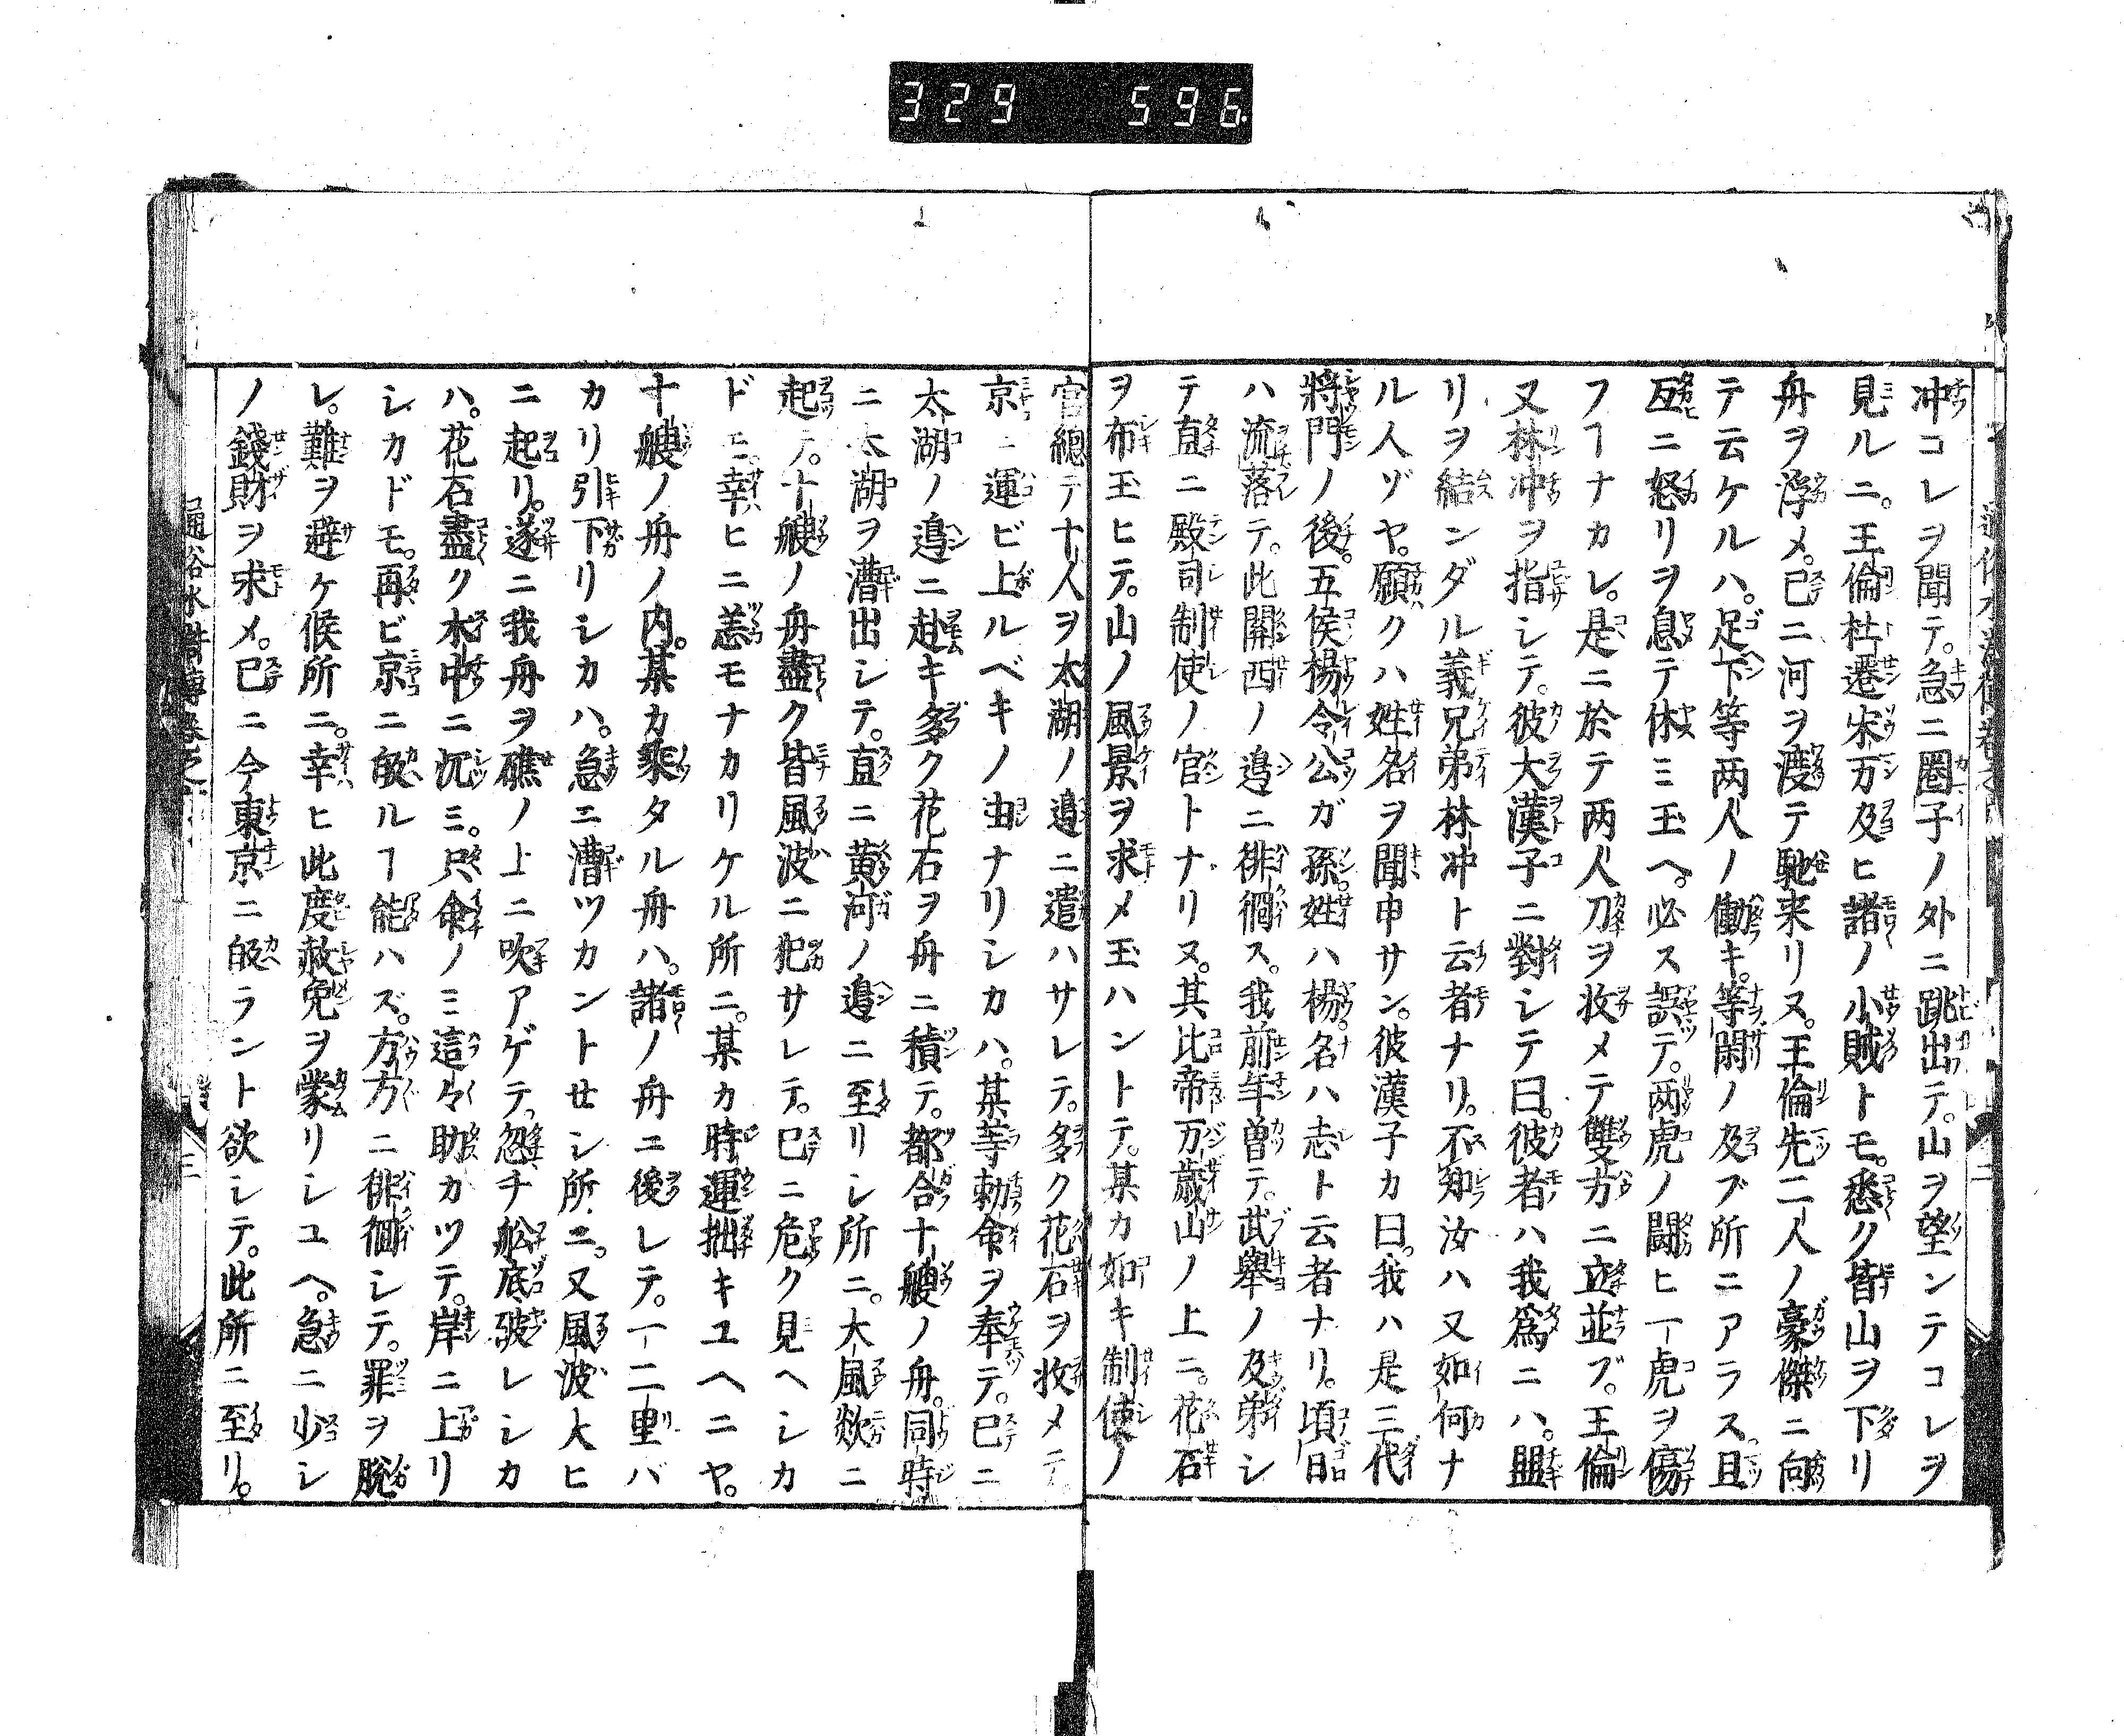 329 596
冲コレヲ聞テ。急ニ圏子ノ外ニ跳出テ。山ヲ望ンテコレヲ
見ルニ。王倫杜遷宋万及ヒ諸ノ小賊トモ。悉ク皆山ヲ下リ
舟ヲ浮メ。已ニ河ヲ渡テ馳来リヌ。王倫先二人ノ豪傑ニ向
テ云ケルハ。足下等両人ノ働キ。等閑ノ及ブ所ニアラス。且
互ニ怒リヲ息テ休ミ玉ヘ。必ス誤テ。両虎ノ闘ヒ一虎ヲ傷
フヿナカレ。是ニ於テ両人刀ヲ收メテ雙方ニ立並ブ。王倫
又林冲ヲ指シテ。彼大漢子ニ對シテ曰。彼者ハ我爲ニハ。盟
リヲ結ンダル義兄弟林冲ト云者ナリ。不知汝ハ又如何ナ
ル人ゾヤ。願クハ姓名ヲ聞申サン。彼漢子カ曰。我ハ是三代
將門ノ後。五侯楊令公ガ孫。姓ハ楊。名ハ志ト云者ナリ。頃日
ハ流落テ。此關西ノ邉ニ徘徊ス。我前年曽テ。武舉ノ及弟シ
テ直ニ殿司制使ノ官トナリヌ。其比帝万歳山ノ上ニ。花石
ヲ布玉ヒテ。山ノ風景ヲ求メ玉ハントテ。某カ如キ制使ノ
官總テ十人ヲ太湖ノ邉ニ遣ハサレテ。多ク花石ヲ收メテ。
京ニ運ビ上ルベキノ由ナリシカハ。某等勅命ヲ奉テ。已ニ
太湖ノ邉ニ赴キ多ク花石ヲ舟ニ積テ。都合十艘ノ舟。同時
ニ太湖ヲ漕出シテ。直ニ黄河ノ邉ニ至リシ所ニ。大風欻ニ
起テ。十艘ノ舟盡ク皆風波ニ犯サレテ。已ニ危ク見ヘシカ
ドモ。幸ヒニ恙モナカリケル所ニ。某カ時運拙キユヘニヤ。
十艘ノ舟ノ内。某カ乘タル舟ハ。諸ノ舟ニ後レテ。一二里バ
カリ引下リシカハ。急ニ漕ツカントせシ所ニ。又風波大ヒ
ニ起リ。遂ニ我舟ヲ礁ノ上ニ吹アゲテ。忽チ舩底破レシカ
ハ。花石盡ク水中ニ沉ミ。只命ノミ這々助カツテ。岸ニ上リ
シカドモ。再ビ京ニ皈ルヿ能ハズ。方方ニ徘徊シテ。罪ヲ脱
レ。難ヲ避ケ候所ニ。幸ヒ此度赦免ヲ蒙リシユヘ。急ニ少シ
ノ錢財ヲ求メ。已ニ今東京ニ皈ラント欲シテ。此所ニ至リ。
通俗水滸傳巻之 三